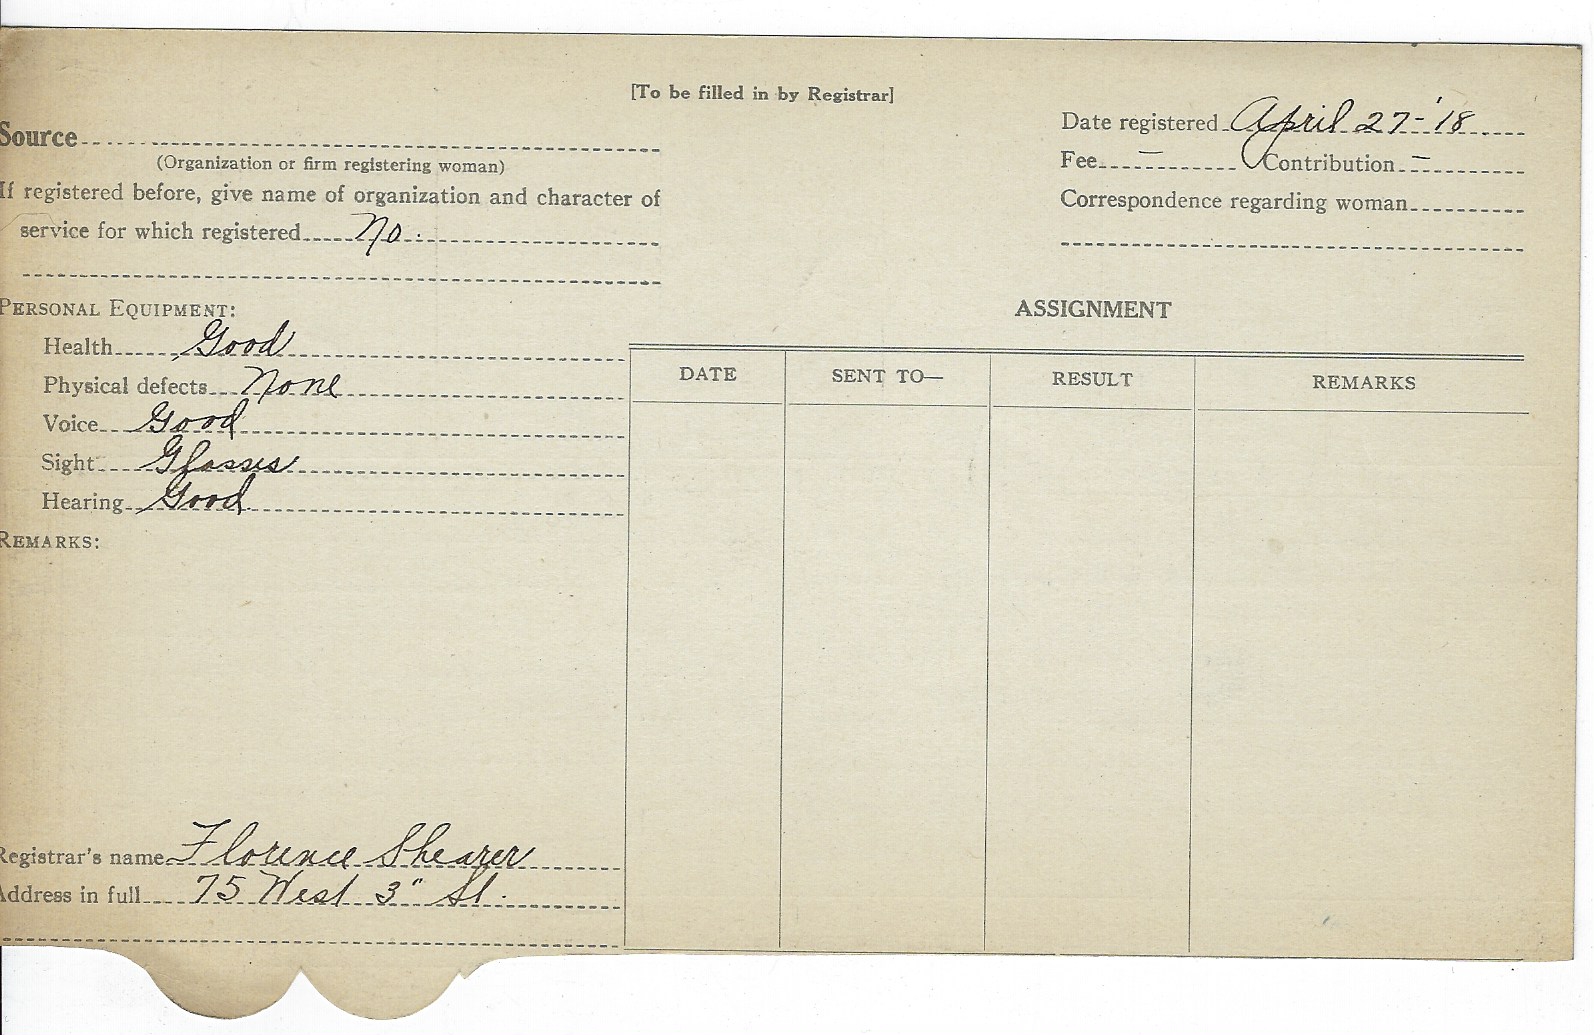 [To be filled in by Registrar]
Source
(Organization or firm registering woman)
If registered before, give name of organization and character of
service for which registered No.
Date registered April 27-'18
Fee – Contribution –
Correspondence regarding woman
PERSONAL EQUIPMENT:
Health Good
Physical defects None
Voice Good
Sight Glasses
Hearing Good
REMARKS:
Registrar's name Florence Shearer
Address in full 75 West 3" St.
ASSIGNMENT
DATE SENT TO— RESULT REMARKS